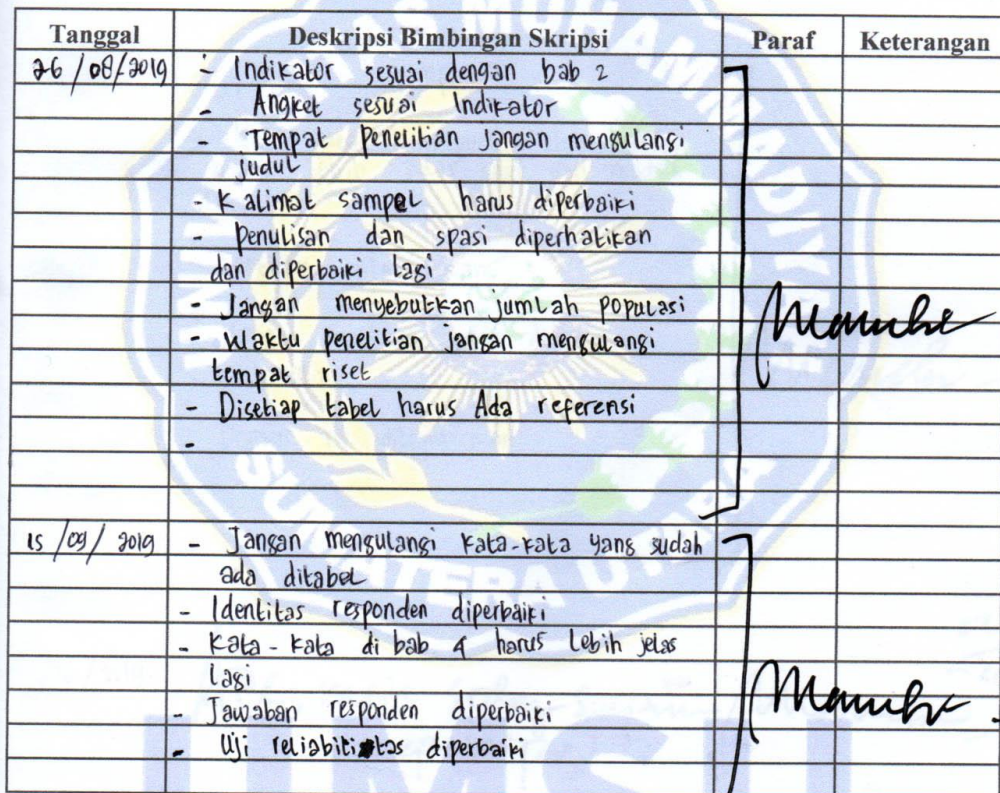 Tanggal Deskripsi Bimbingan Skripsi Paraf Keterangan
26/08/2019 - Indikator sesuai dengan bab 2
- Angket sesuai Indikator
- Tempat penelitian jangan mengulangi
judul
- Kalimat sampel harus diperbaiki
- Penulisan dan spasi diperhatikan
dan diperbaiki lagi
- Jangan menyebutkan jumlah populasi
- Waktu penelitian jangan mengulangi
tempat riset
- Disetiap tabel harus Ada referensi
-
15/09/2019 - Jangan mengulangi kata-kata yang sudah
ada ditabel
- Identitas responden diperbaiki
- Kata-kata di bab 4 harus lebih jelas
lagi
- Jawaban responden diperbaiki
- Uji reliabilitas diperbaiki
UNIVERSITAS MUHAMMADIYAH
SUMATERA UTARA
UMSU